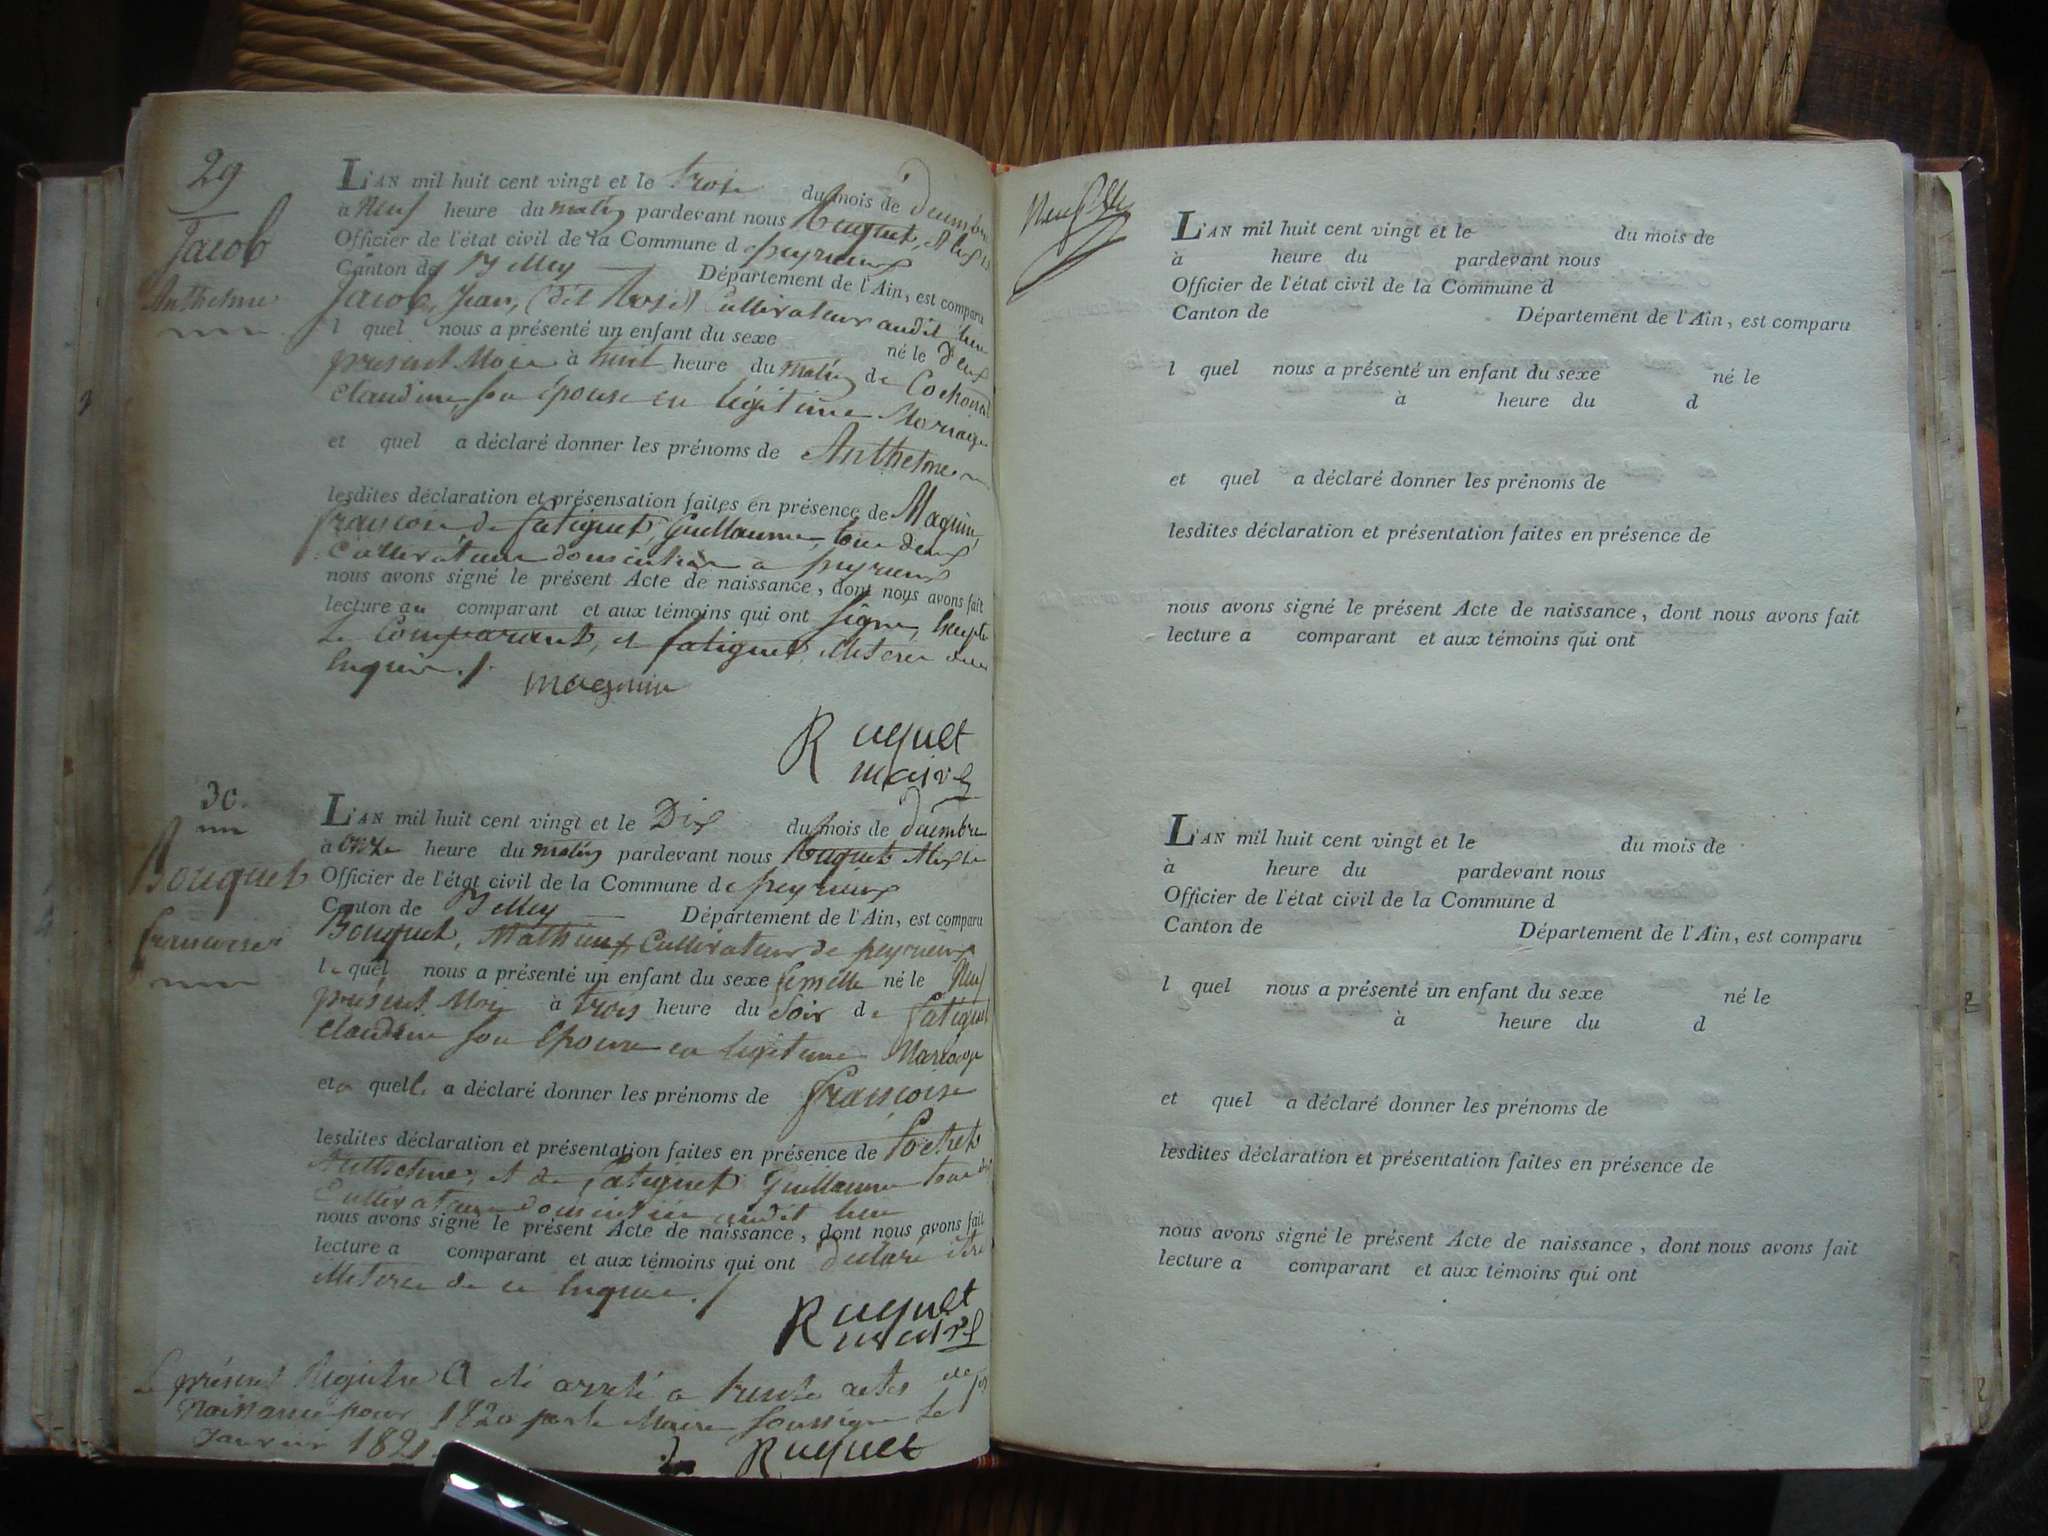 29
Jacob
Anthelme
L'AN mil huit cent vingt et le trois du mois de décembre
à Neuf heure du matin pardevant nous Ruquet, Alexis
Officier de l'état civil de la Commune d peyrieux
Canton de Belley Département de l'Ain, est comparu
Jacob, Jean, (dit Rosset) Cultivateur audit lieu
l quel nous a présenté un enfant du sexe né le deux
présent Mois à huit heure du matin de Cochonat
Claudine son épouse en légitime Mariage
et quel a déclaré donner les prénoms de Anthelme
lesdites déclaration et présensation faites en présence de Magnin,
françois de fatiguet, Guillaume, tous deux
Cultivateurs domiciliés a peyrieux
nous avons signé le présent Acte de naissance, dont nous avons fait
lecture au comparant et aux témoins qui ont signé, Excepté
le Comparant, et fatiguet
Enquis ./.
magnin
Ruquet
maire
30.
Bouquet
francoise
L'AN mil huit cent vingt et le Dix du mois de décembre
à onze heure du matin pardevant nous Ruquet Alexis
Officier de l'état civil de la Commune de peyrieux
Canton de Belley Département de l'Ain, est comparu
Bouquet, Mathieux Cultivateur de peyrieux
le quel nous a présenté un enfant du sexe femelle né le Neuf
présent Mois à trois heure du Soir de fatiguet
Claudine son Epouse en légitime Mariage
et a quelle a déclaré donner les prénoms de françoise
lesdites déclaration et présentation faites en présence de Pochet
Anthelme, et de fatiguet Guillaume tous
Cultivateurs domiciliés audit lieu
nous avons signé le présent Acte de naissance, dont nous avons fait
lecture a comparant et aux témoins qui ont déclaré
de ce Enquis ./
Ruquet
maire
Le présent Registre a été arreté a trente actes de
Naissance pour 1820 par le Maire soussigné le
Janvier 1821
Ruquet
L'AN mil huit cent vingt et le du mois de
à heure du pardevant nous
Officier de l'état civil de la Commune d
Canton de Département de l'Ain, est comparu
l quel nous a présenté un enfant du sexe né le
à heure du d
et quel a déclaré donner les prénoms de
lesdites déclaration et présentation faites en présence de
nous avons signé le présent Acte de naissance, dont nous avons fait
lecture a comparant et aux témoins qui ont
L'AN mil huit cent vingt et le du mois de
à heure du pardevant nous
Officier de l'état civil de la Commune d
Canton de Département de l'Ain, est comparu
l quel nous a présenté un enfant du sexe né le
à heure du d
et quel a déclaré donner les prénoms de
lesdites déclaration et présentation faites en présence de
nous avons signé le présent Acte de naissance, dont nous avons fait
lecture a comparant et aux témoins qui ont